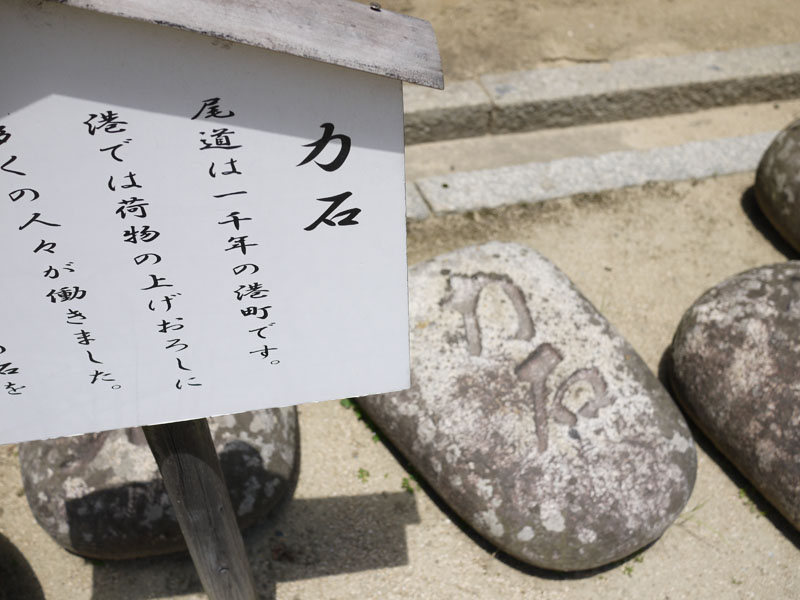 力石
尾道は一千年の港町です。
港では荷物の上げおろしに
多くの人々が働きました。
石を
力石